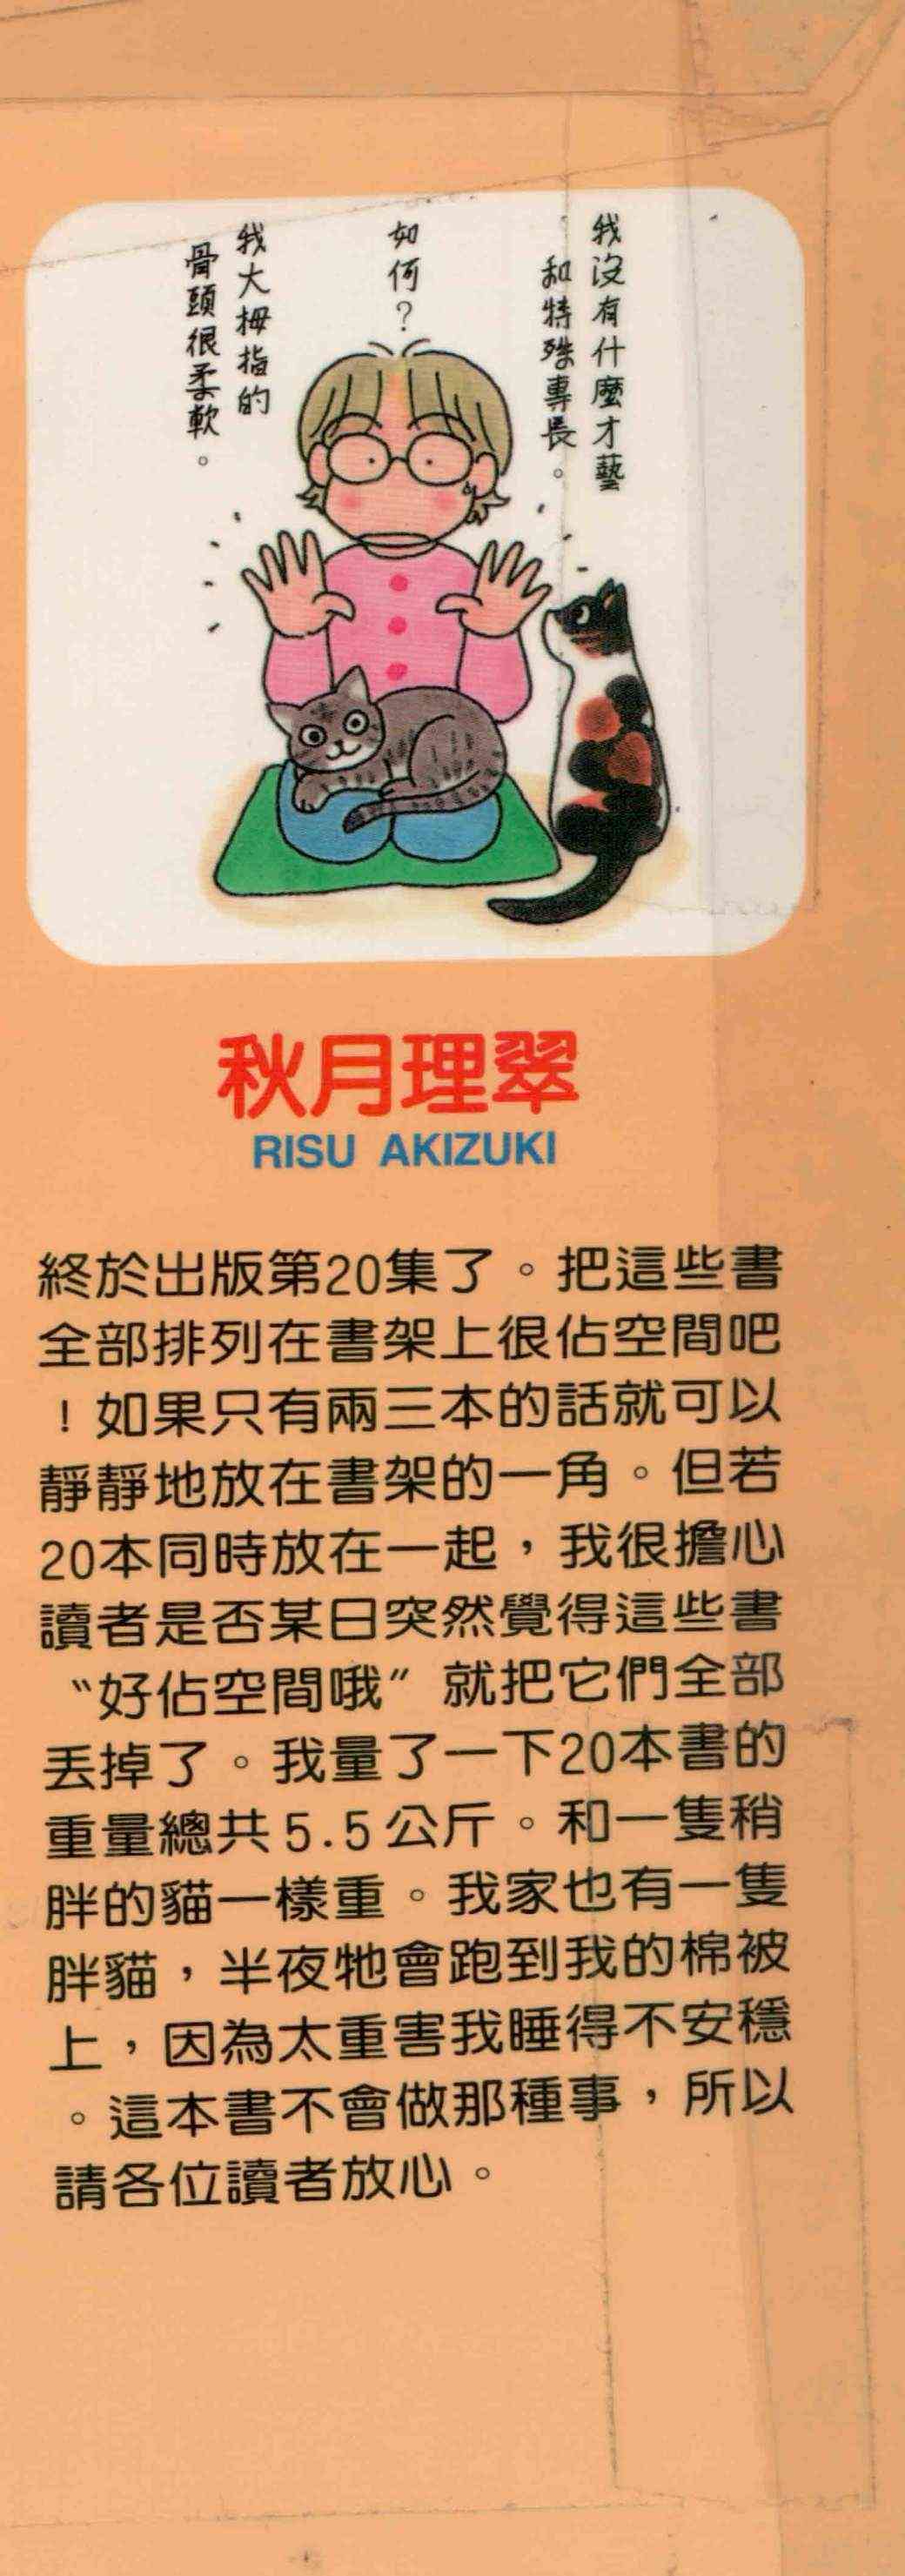 我沒有什麼才藝
和特殊專長。
如何？
我大拇指的
骨頭很柔軟。
秋月理翠
RISU AKIZUKI
終於出版第20集了。把這些書
全部排列在書架上很佔空間吧
！如果只有兩三本的話就可以
靜靜地放在書架的一角。但若
20本同時放在一起，我很擔心
讀者是否某日突然覺得這些書
〝好佔空間哦〞就把它們全部
丟掉了。我量了一下20本書的
重量總共5.5公斤。和一隻稍
胖的貓一樣重。我家也有一隻
胖貓，半夜牠會跑到我的棉被
上，因為太重害我睡得不安穩
。這本書不會做那種事，所以
請各位讀者放心。